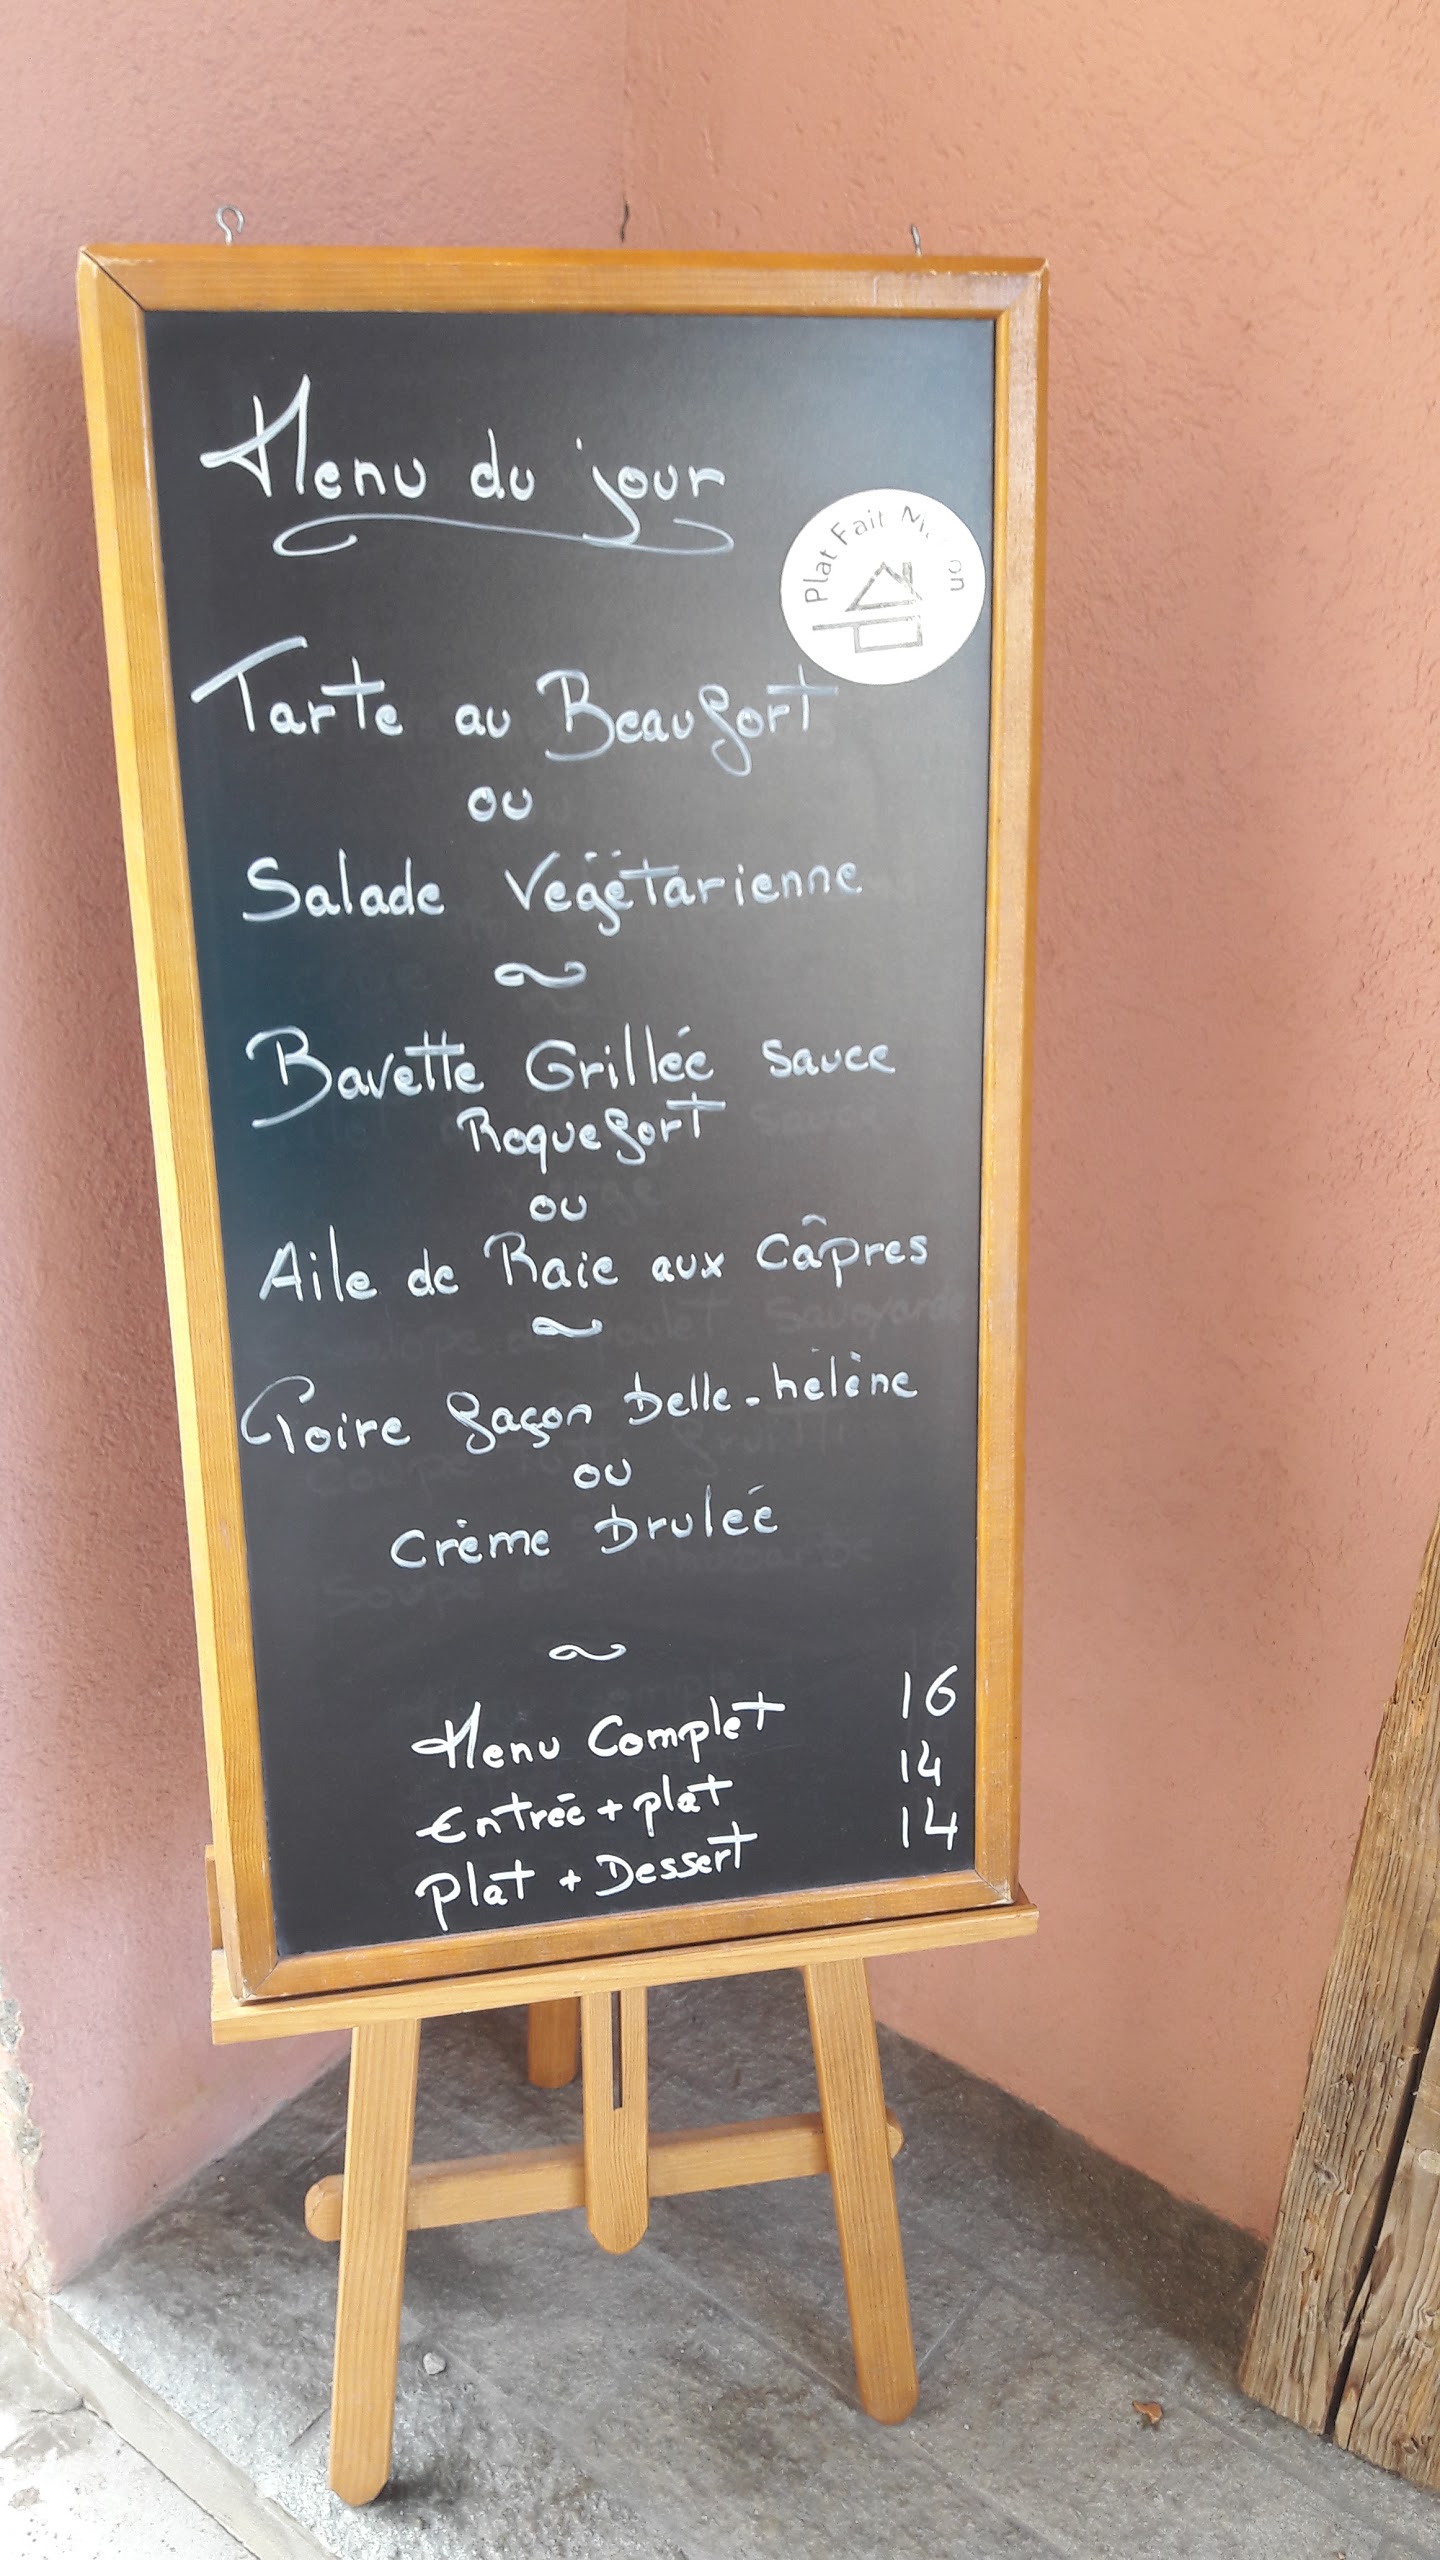 Menu du jour
Plat Fait Maison
Tarte au Beaufort
ou
Salade Végétarienne
~
Bavette Grillée sauce
Roquefort
ou
Aile de Raie aux Câpres
~
Poire façon belle-hélène
ou
Crème brulée
~
Menu Complet 16
Entrée + plat 14
plat + Dessert 14